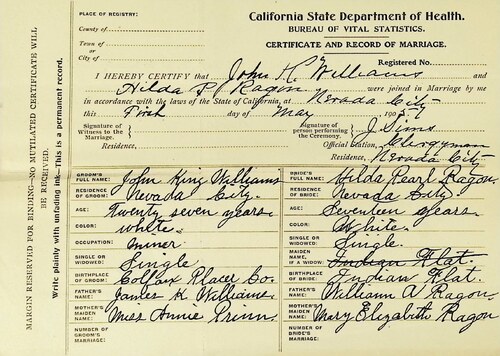 PLACE OF REGISTRY:
County of
Town of
or
City of
California State Department of Health.
BUREAU OF VITAL STATISTICS.
CERTIFICATE AND RECORD OF MARRIAGE.
Registered No.
I HEREBY CERTIFY that John K. Williams and
Hilda P. Ragon were joined in Marriage by me
in accordance with the laws of the State of California, at Nevada City
this First day of May 190
Signature of Witness to the Marriage.
Residence,
Signature of person performing the Ceremony. J. Sims
Official Station, Clergyman
Residence, Nevada City
MARGIN RESERVED FOR BINDING—NO MUTILATED CERTIFICATE WILL
BE RECEIVED.
Write plainly with unfading ink—This is a permanent record.
GROOM'S FULL NAME: John King Williams
RESIDENCE OF GROOM: Nevada City.
AGE: Twenty seven years.
COLOR: White.
OCCUPATION: Miner
SINGLE OR WIDOWED: Single
BIRTHPLACE OF GROOM: Colfax Placer Co.
FATHER'S NAME: James K. Williams.
MOTHER'S MAIDEN NAME: Miss Annie Prinn.
NUMBER OF GROOM'S MARRIAGE:
BRIDE'S FULL NAME: Hilda Pearl Ragon.
RESIDENCE OF BRIDE: Nevada City.
AGE: Seventeen years.
COLOR: White.
SINGLE OR WIDOWED: Single.
MAIDEN NAME, IF A WIDOW: Indian Flat.
BIRTHPLACE OF BRIDE: Indian Flat.
FATHER'S NAME: William A Ragon
MOTHER'S MAIDEN NAME: Mary Elizabeth Ragon
NUMBER OF BRIDE'S MARRIAGE: